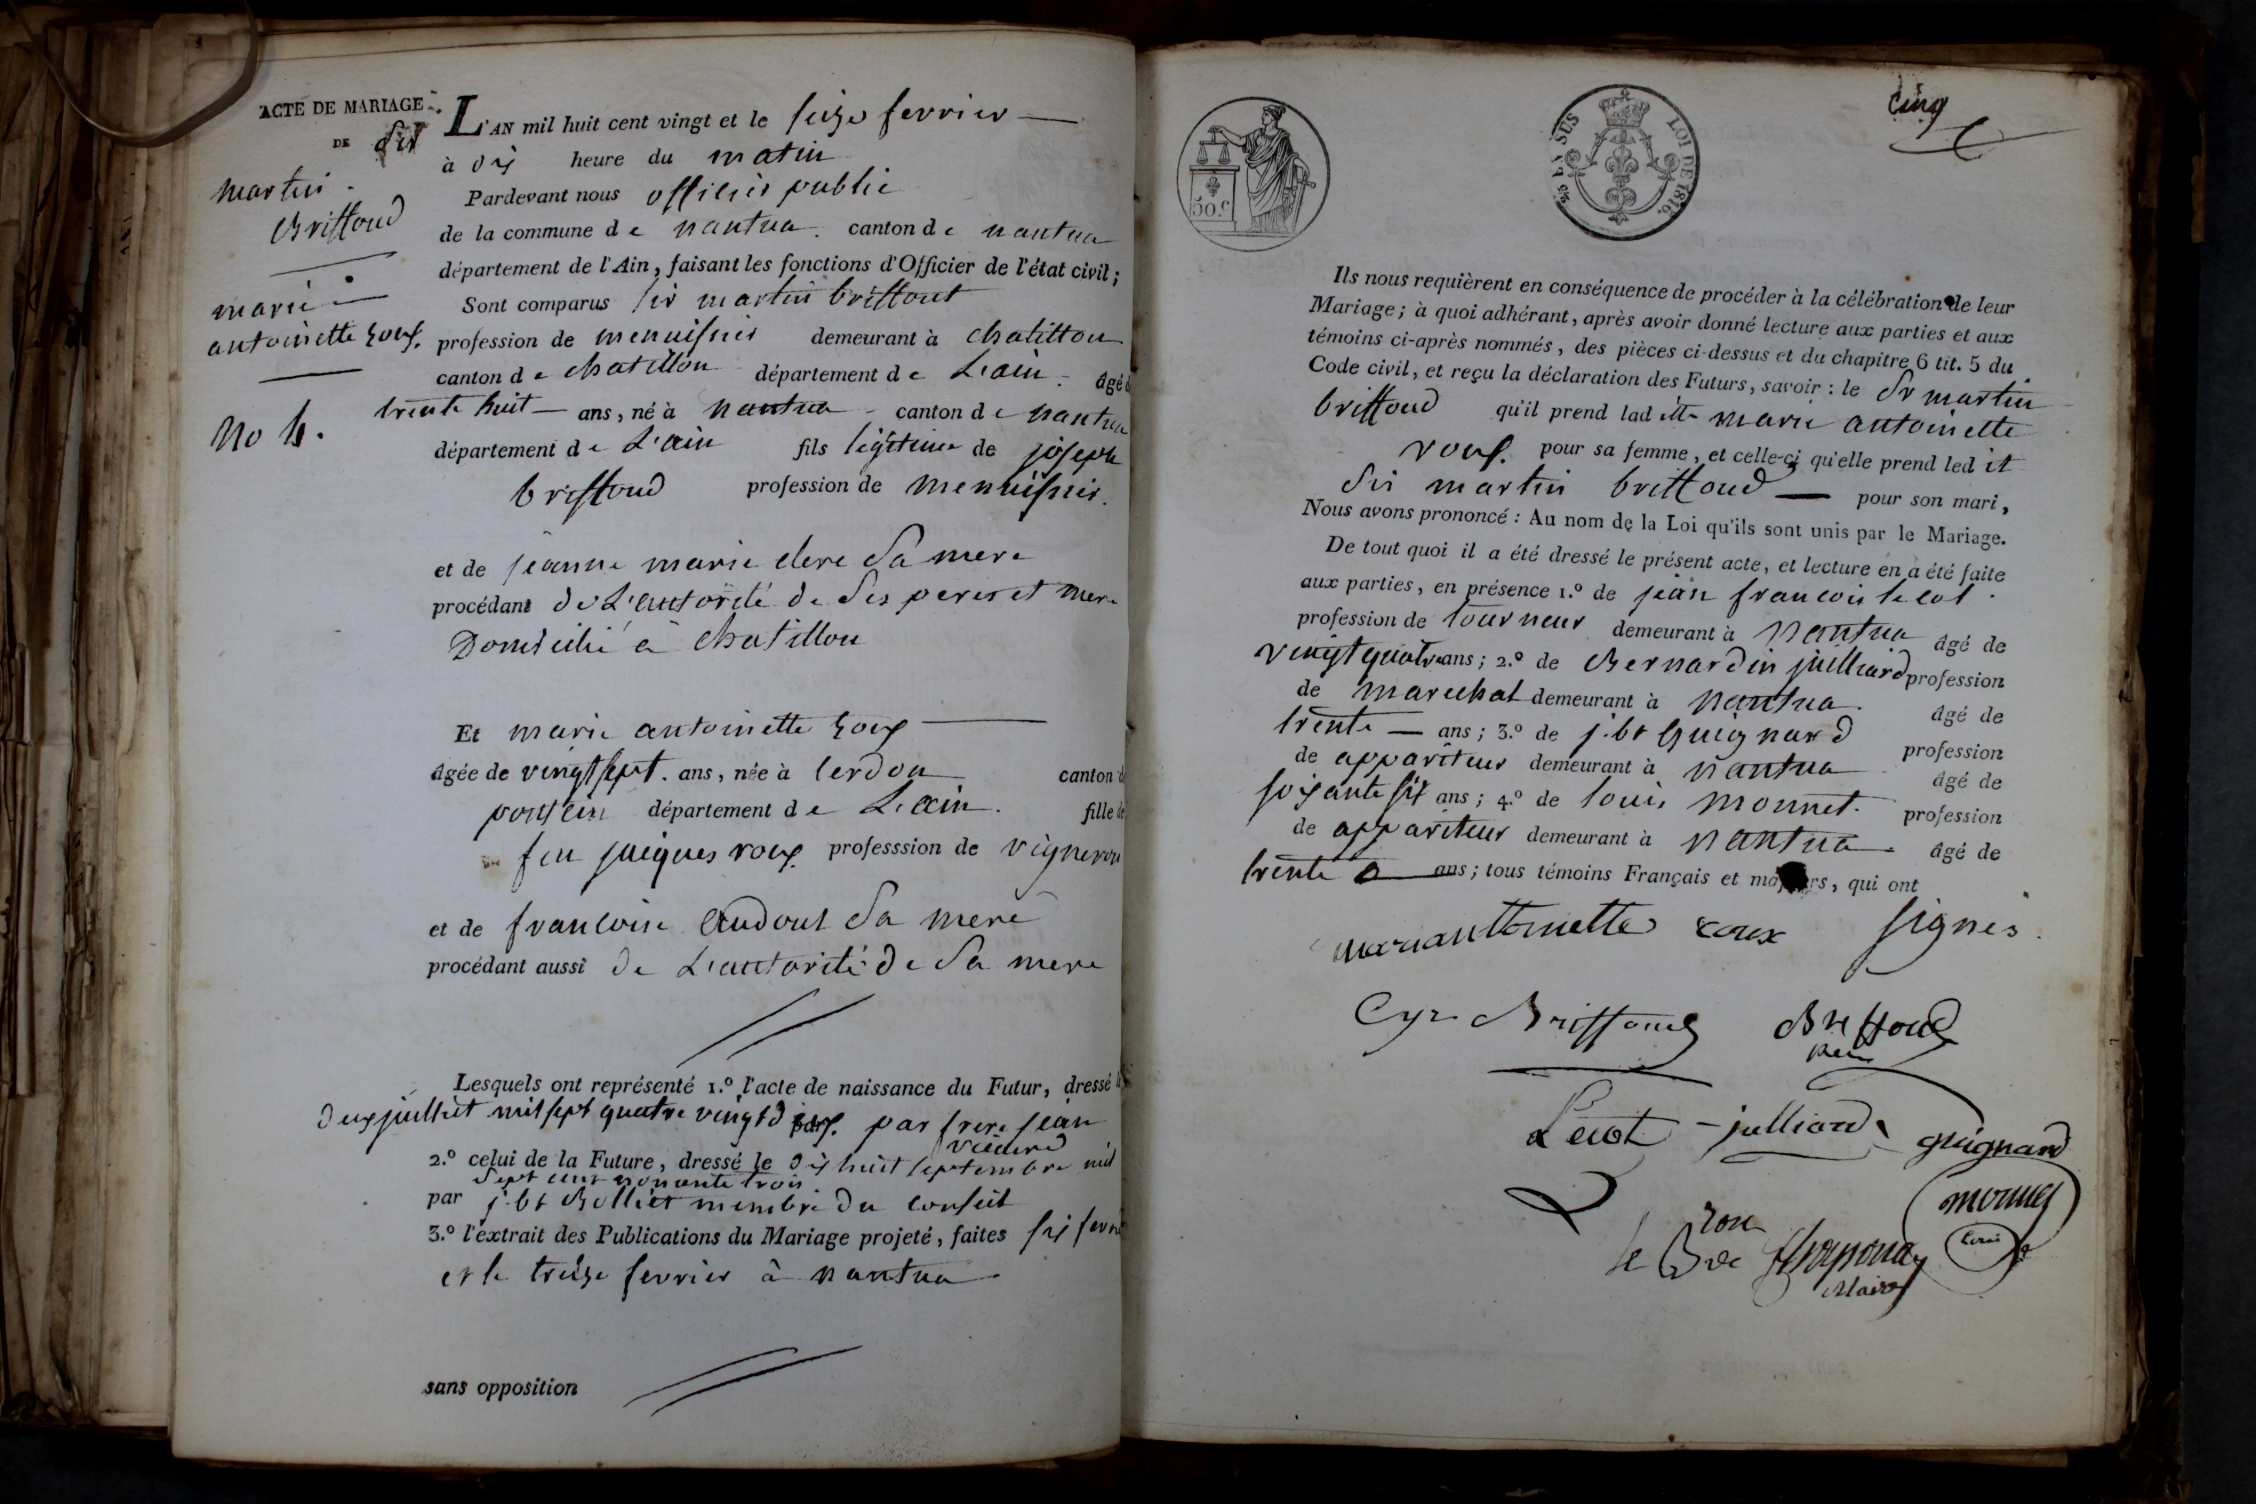 ACTE DE MARIAGE
DE Sir
martin
Briffoud
marie
antoinette roux.
No 6.
L'AN mil huit cent vingt et le seize fevrier
à dix heure du matin
Pardevant nous officier public
de la commune de nantua canton de nantua
département de l'Ain, faisant les fonctions d'Officier de l'état civil;
Sont comparus sir martin briffoud
profession de menuisier demeurant à chatillon
canton de chatillon département de L'ain âgé d
trente huit ans, né à nantua canton de nantua
département de L'ain fils légitime de joseph
briffoud profession de menuisier.
et de jeanne marie clere Sa mere
procédant de L'autorité de Ses peres et mere
Domicilié à chatillon
Et marie antoinette roux
âgée de vingt sept. ans, née à cerdon canton d
poncin département de L'ain. fille de
feu jacques roux professsion de vigneron
et de francoise Audout Sa mere
procédant aussi de L'autorité de Sa mere
Lesquels ont représenté 1.º l'acte de naissance du Futur, dressé le
deux juillet mil sept quatre vingt par frere jean
2.º celui de la Future, dressé le dix huit septembre mil
Sept cent nonante trois
par j. bt Bolliet membre du conseil
3.º l'extrait des Publications du Mariage projeté, faites six fevrier
et le treize fevrier à nantua
sans opposition
50.C
LOI DE 1816.
cinq
Ils nous requièrent en conséquence de procéder à la célébration de leur
Mariage; à quoi adhérant, après avoir donné lecture aux parties et aux
témoins ci-après nommés, des pièces ci-dessus et du chapitre 6 tit. 5 du
Code civil, et reçu la déclaration des Futurs, savoir: le Sr martin
briffoud qu'il prend ladite marie antoinette
roux. pour sa femme, et celle-ci qu'elle prend ledit
Sir martin briffoud pour son mari,
Nous avons prononcé: Au nom de la Loi qu'ils sont unis par le Mariage.
De tout quoi il a été dressé le présent acte, et lecture en a été faite
aux parties, en présence 1.º de jean francois lecot
profession de tourneur demeurant à nantua âgé de
vingt quatre ans; 2.º de Bernardin juilliard profession
de marechal demeurant à nantua. âgé de
trente ans; 3.º de j. bt Guignard profession
de appariteur demeurant à nantua âgé de
soixante six ans; 4.º de louis monnet. profession
de appariteur demeurant à nantua. âgé de
trente ans; tous témoins Français et majeurs, qui ont
signés.
mariantoinette roux
Cyr Briffoud Briffoud
pere
Lecot julliard guignard
monnet
louis
le Bon de
Maire